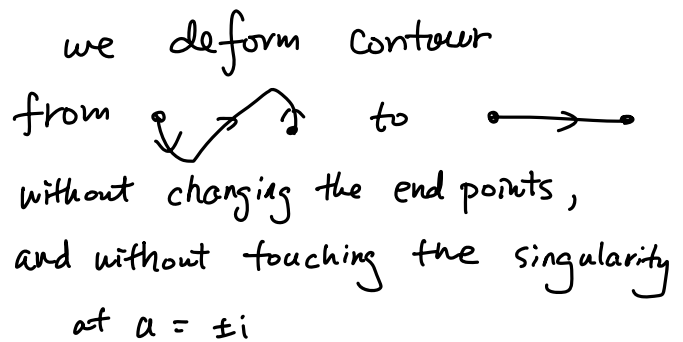 we deform contour
from to
without changing the end points,
and without touching the singularity
at a = ±i